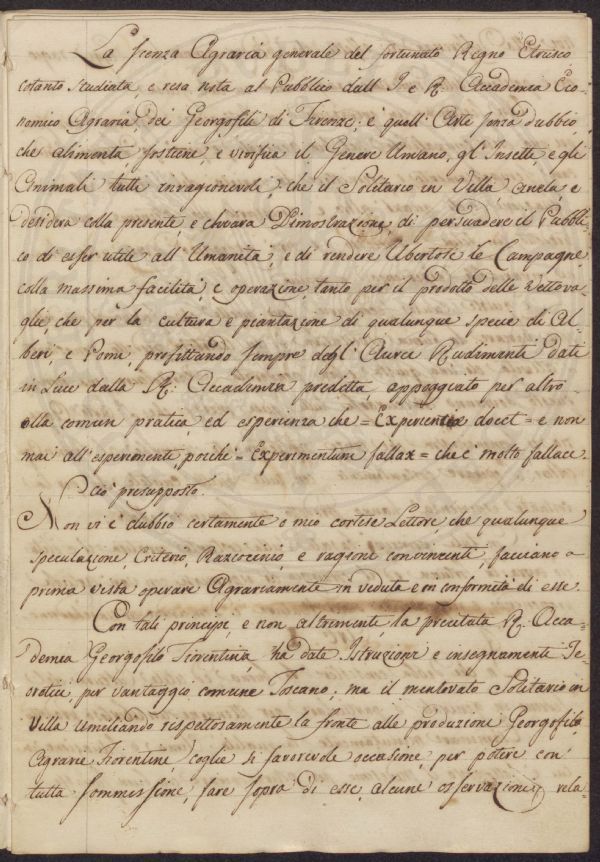 La scenza Agraria generale del fortunato Regno Etrusco
cotanto studiata, e resa nota al Pubblico dall' I e R. Accademia Eco=
nomico Agraria, dei Georgofili di Firenze; è quall' Arte senza dubbio,
che alimenta sostiene, e vivifica il Genere Umano, gl' Insetti, e gli
Animali tutti inragionevoli, che il Solitario in Villa, anela, e
desidera colla presente, e chiara Dimostrazione, di persuadere il Pubbli=
co di esser utile all' Umanità, e di rendere Ubertose le Campagne,
colla massima facilità, e operazione, tanto per il prodotto delle Vettova=
glie, che per la cultura e piantazione di qualunque specie di Al=
beri, e Pomi, profittando sempre degl' Aurei Rudimenti dati
in Luce dalla R. Accademia predetta, appoggiato per altro
alla comun pratica, ed esperienza che = Experientia docet = e non
mai all' esperimente, poiché = Experimentum fallax = che è molto fallace
Ciò presupposto.
Non vi è dubbio certamente o mio cortese Lettore, che qualunque
speculazione, Criterio, Raziocinio, e ragioni convincenti, facciano a
prima vista operare Agrariamente in veduta e in conformità di esse.
Con tali principi, e non altrimenti, la precitata R. Acca=
demia Georgofilo Fiorentina, ha date Istruzioni e insegnamenti Te=
orotici, per vantaggio comune Toscano, ma il mentovato Solitario in
Villa umiliando rispettosamente la fronte alle produzioni Georgofilo,
Agrarie Fiorentine, coglie sì favorevole occasione, per potere con
tutta sommissione, fare sopra di esse, alcune osservazioni, rela=